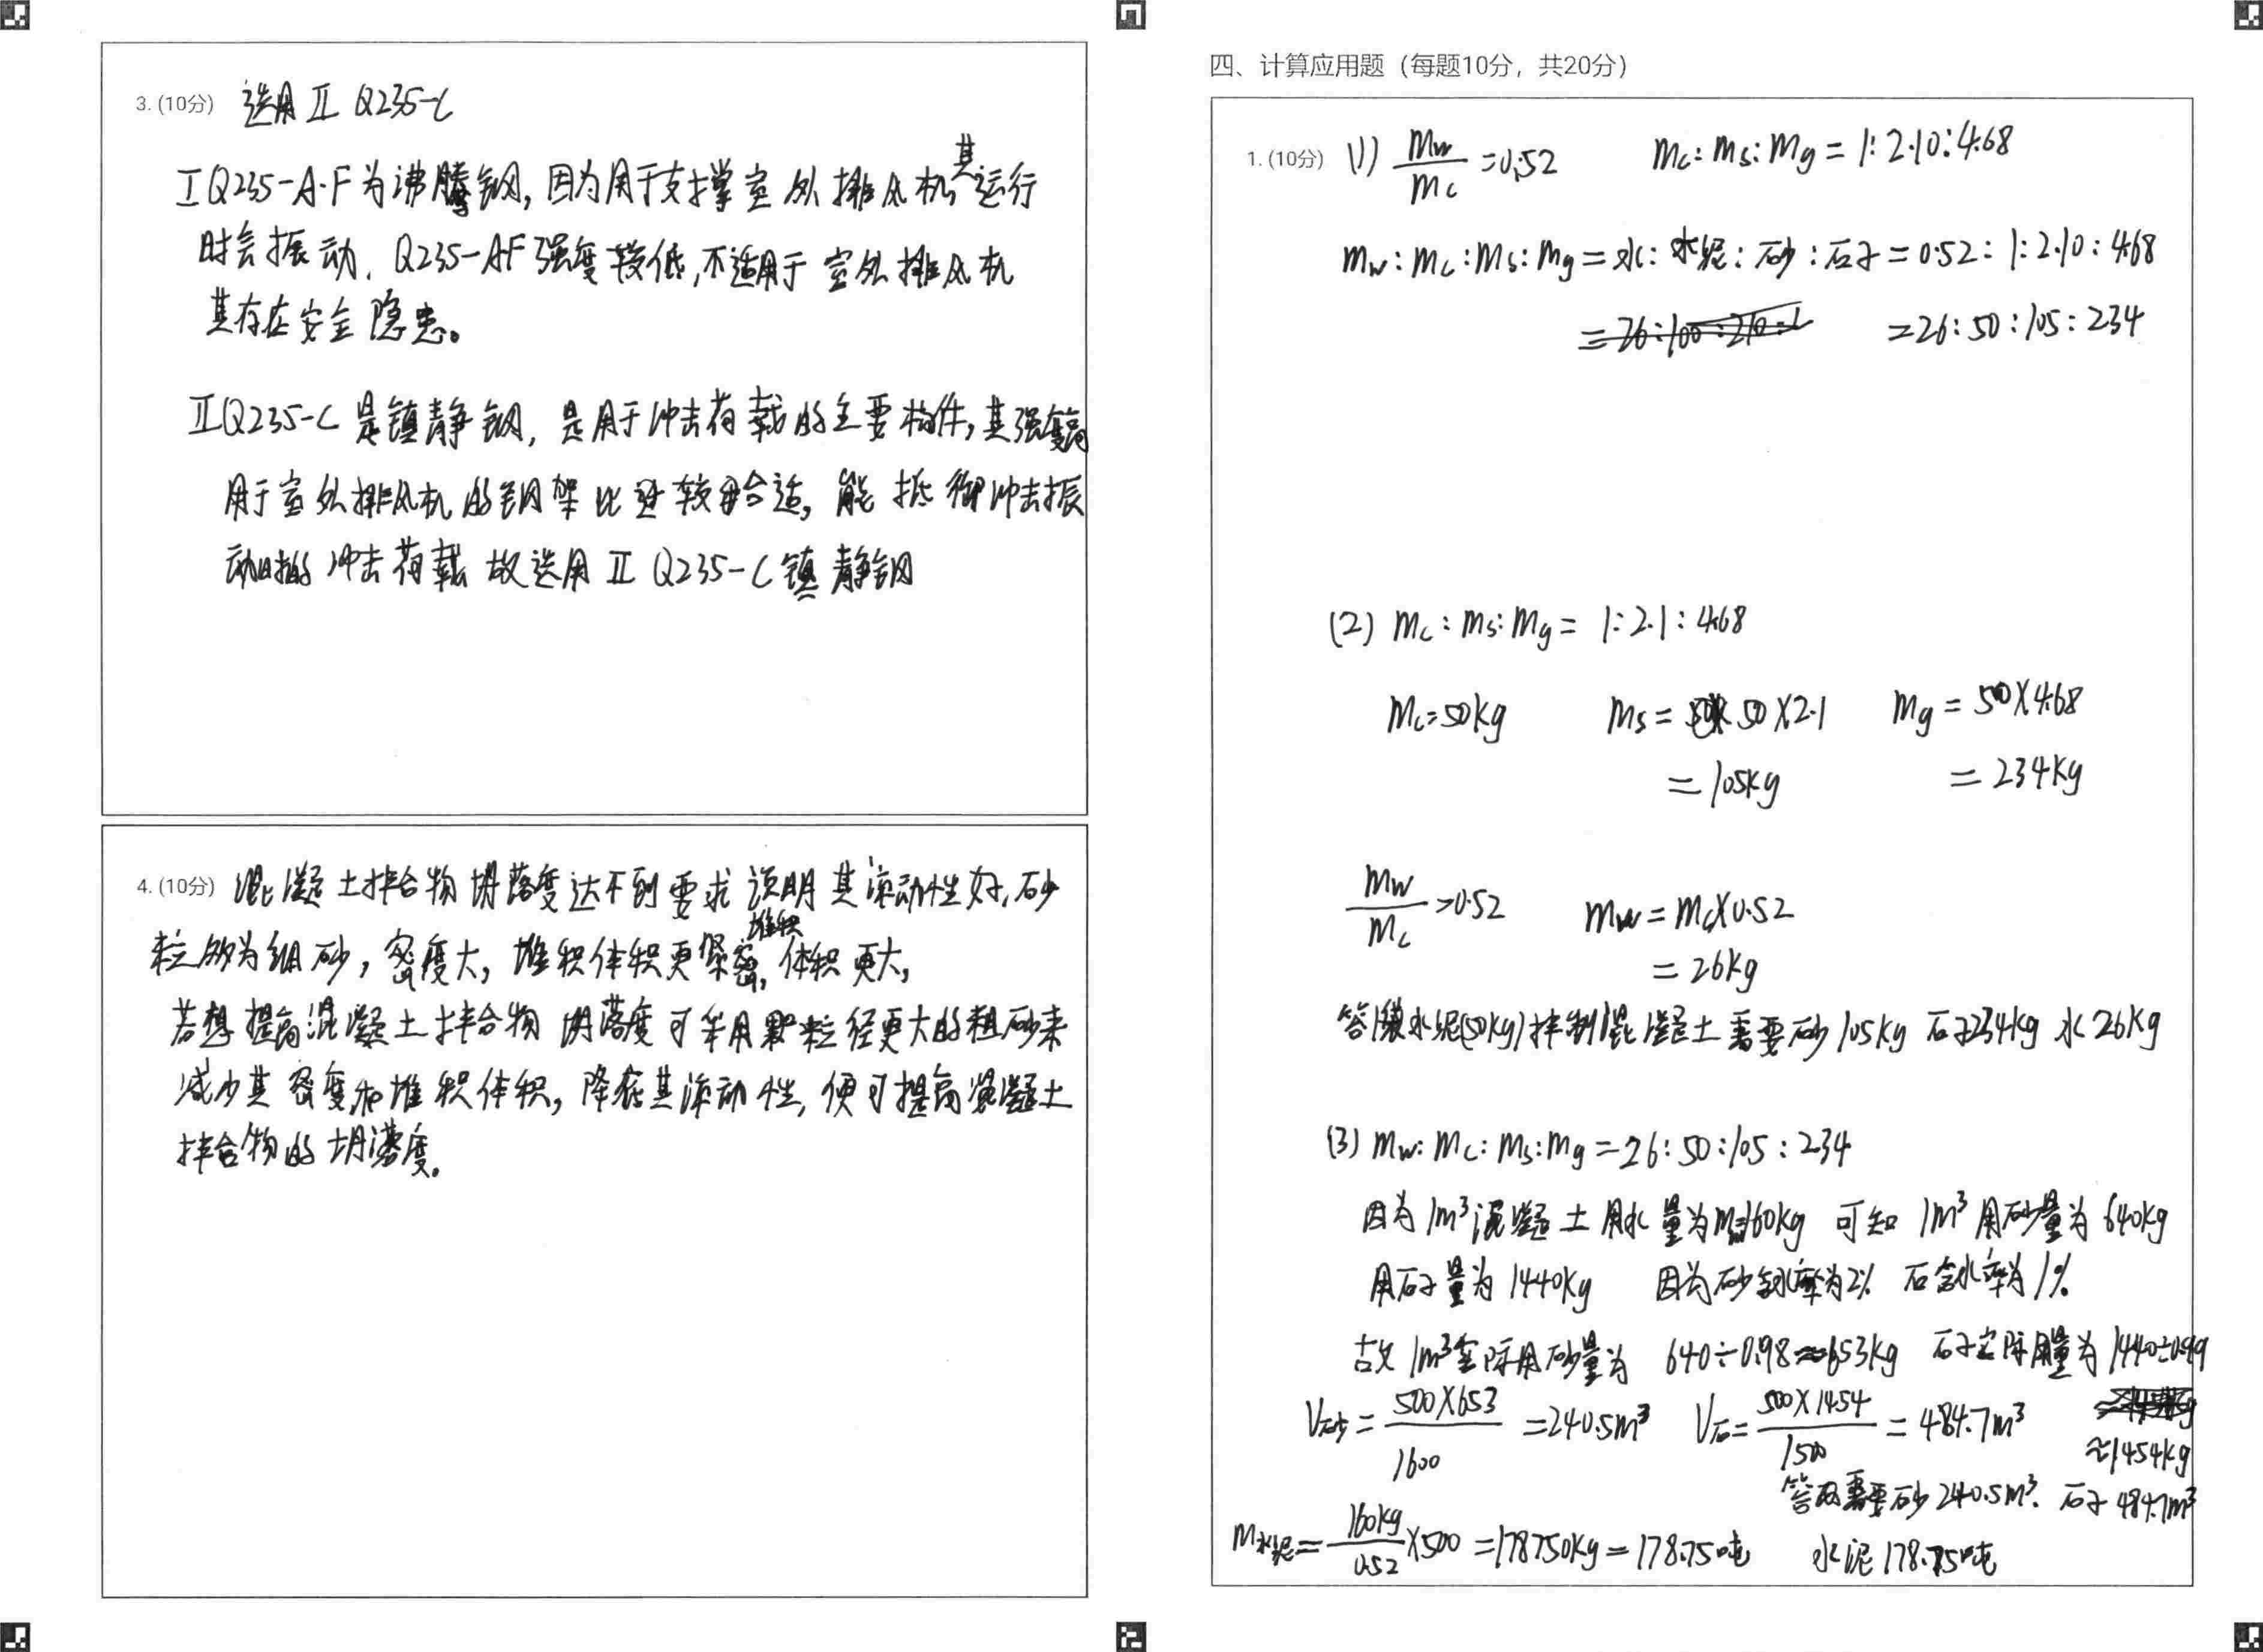 3. (10分) 选用 Ⅱ Q235-C
Ⅰ Q235-A·F为沸腾钢,因为用于支撑室外排风机其运行
时会振动. Q235-AF强度较低,不适用于室外排风机
其存在安全隐患。
ⅡQ235-C 是镇静钢, 是用于冲击荷载的主要构件,其强度高
用于室外排风机的钢架比较合适, 能抵御冲击振
动时的冲击荷载 故选用 Ⅱ Q235-C镇静钢
4. (10分) 混凝土拌合物坍落度达不到要求 说明其流动性好,砂
粒够为细砂, 密度大, 堆积体积更紧密, 堆积体积更大,
若想提高混凝土拌合物坍落度可采用颗粒径更大的粗砂来
减少其密度和堆积体积, 降低其流动性, 便可提高混凝土
拌合物的坍落度。
四、计算应用题（每题10分，共20分）
1. (10分) (1) mw/mc =0.52 mc:ms:mg=1:2.10:4.68
mw:mc:ms:mg=水:水泥:砂:石子=0.52:1:2.10:4.68
=26:50:105:234
(2) mc:ms:mg= 1:2.1:4.68
mc=50kg ms= 50×2.1 mg = 50×4.68
=105kg = 234kg
mw/mc =0.52 mw=mc×0.52
= 26kg
答1袋水泥(50kg)拌制混凝土需要砂105kg 石子234kg 水26kg
(3) mw:mc:ms:mg=26:50:105:234
因为1m³混凝土用水量为160kg 可知 1m³用砂量为640kg
用石子量为1440kg 因为砂含水率为2% 石含水率为1%
故1m³实际用砂量为 640÷0.98≈653kg 石子实际用量为1440÷0.99
≈1454kg
V砂= 500×653/1600 =240.5m³ V石= 500×1454/1500 = 484.7m³
答 需要砂240.5m³. 石子484.7m³
M水泥= 160kg/0.52 ×500 =178750kg=178.75吨 水泥178.75吨